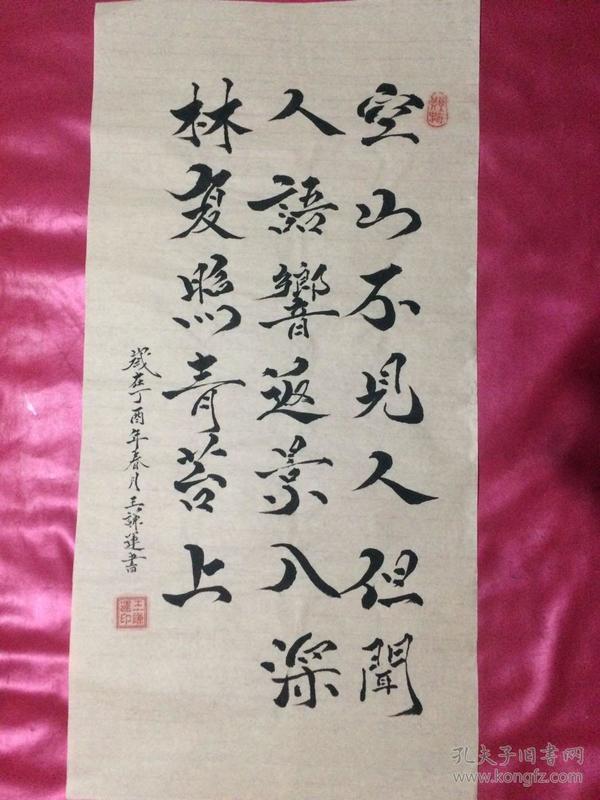 空山不見人但聞
人語響返景入深
林复照青苔上
歲在丁酉年春月王謙運書
王謙運印
孔夫子旧书网
www.kongfz.com